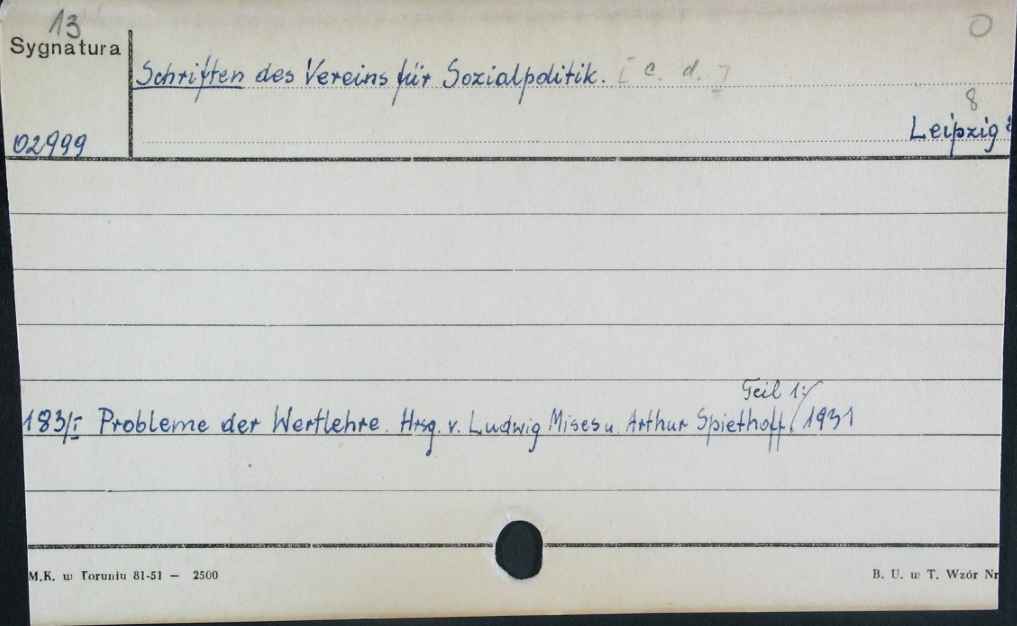 13
O
Sygnatura
Schriften des Vereins für Sozialpolitik. [c. d.]
8
02999
Leipzig
Teil 1:
183/I Probleme der Wertlehre. Hrsg. v. Ludwig Mises u. Arthur Spiethoff. 1931
M.K. w Toruniu 81-51 — 2500
B. U. w T. Wzór Nr